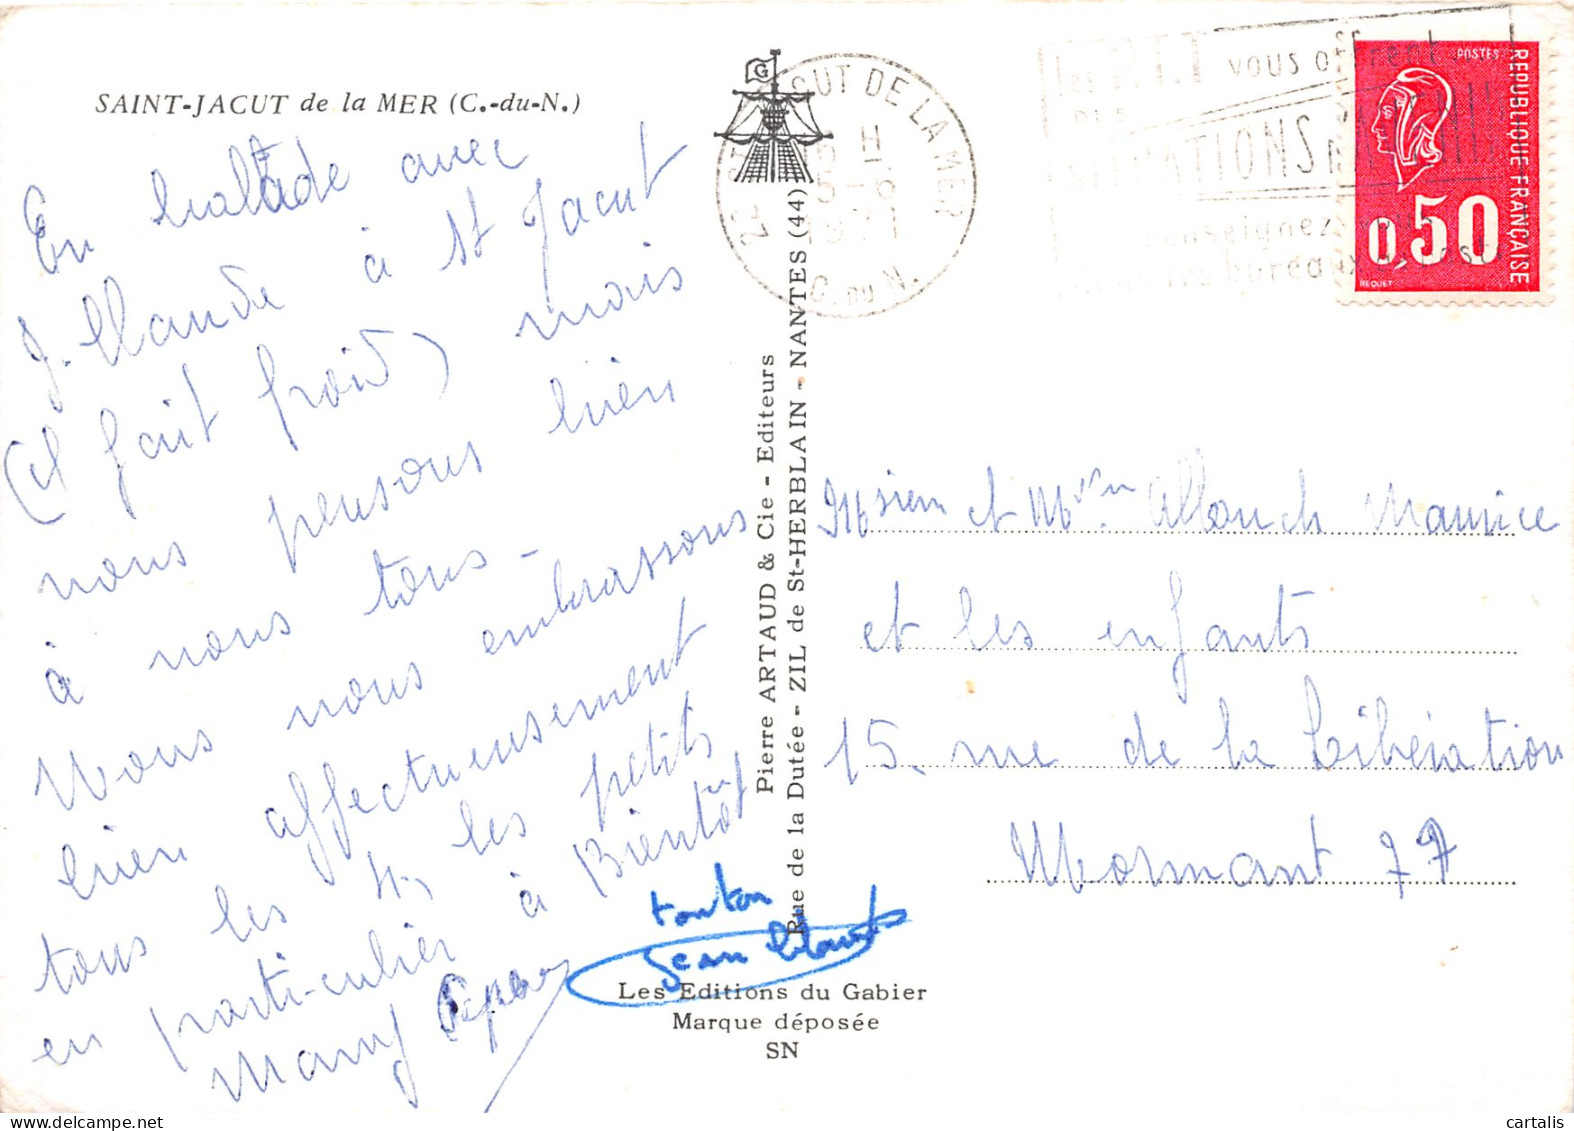 SAINT-JACUT de la MER (C.-du-N.)
En balade avec
J. Claude à St Jacut
(il fait froid) mais
nous pensons bien
à vous tous -
Nous vous embrassons
bien affectueusement
tous les 4, les petits
en particulier à Bientôt
Mamy Pépé
tonton
Jean Claude
Pierre ARTAUD & Cie - Editeurs
Rue de la Dutée - ZIL de St-HERBLAIN - NANTES (44)
Les Editions du Gabier
Marque déposée
SN
G
CUT DE LA MER
22
H
5-6
1971
C. DU N.
les P.T.T vous offrent
SITUATIONS
renseignez
dans les bureaux de poste
POSTES
REPUBLIQUE FRANÇAISE
0,50
BEQUET
Msieur et Mme Allouch Maurice
et les enfants
15. rue de la Libération
Mormant 77
cartalis